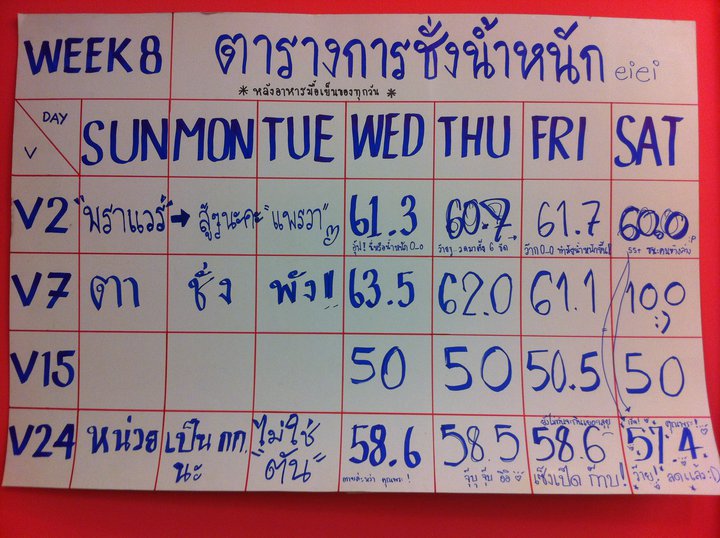 WEEK 8 ตารางการชั่งน้ำหนัก eiei
* หลังอาหารมื้อเย็นของทุกวัน *
DAY
V SUN MON TUE WED THU FRI SAT
V2 "พราแวร์" → สู้ๆนะคะ "แพรวา" 61.3 60.7 61.7 60.0
V7 ตาา ชั่ง พัง!! 63.5 62.0 61.1 100 :)
V15 50 50 50.5 50
V24 หน่วย เป็น กก. นะ ไม่ใช่ "ตัน" 58.6 58.5 58.6 57.4